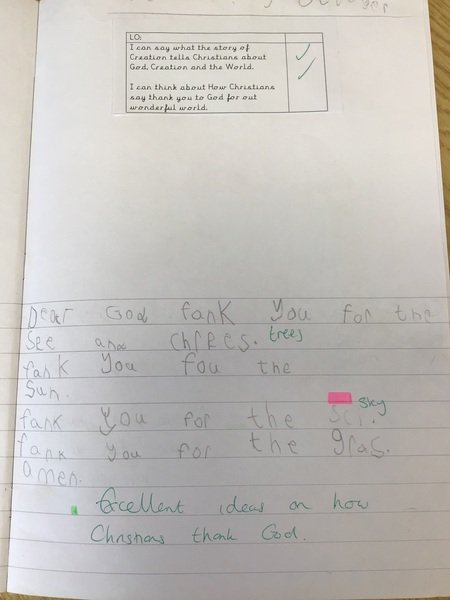 October
LO:
I can say what the story of
Creation tells Christians about
God, Creation and the World.
I can think about How Christians
say thank you to God for out
wonderful world.
Dear God fank you for the
See and chrees. trees
fank you fou the
sun.
fank you for the sci. sky
fank you for the gras.
amen.
Excellent ideas on how
Christians thank God.